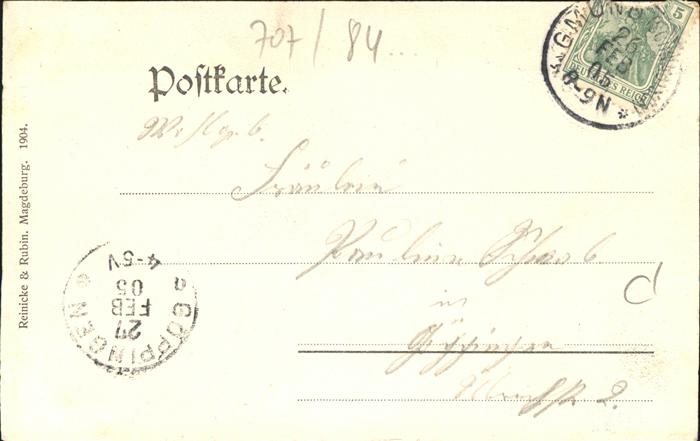 707/84...
Postkarte.
Fräulein
Pauline Schwab
in
Göppingen
2.
GMÜND
26
FEB
05
8-9N
5
DEUTSCHES REICH
GÖPPINGEN
27
FEB
05
4-5V
Reinicke & Rubin. Magdeburg. 1904.